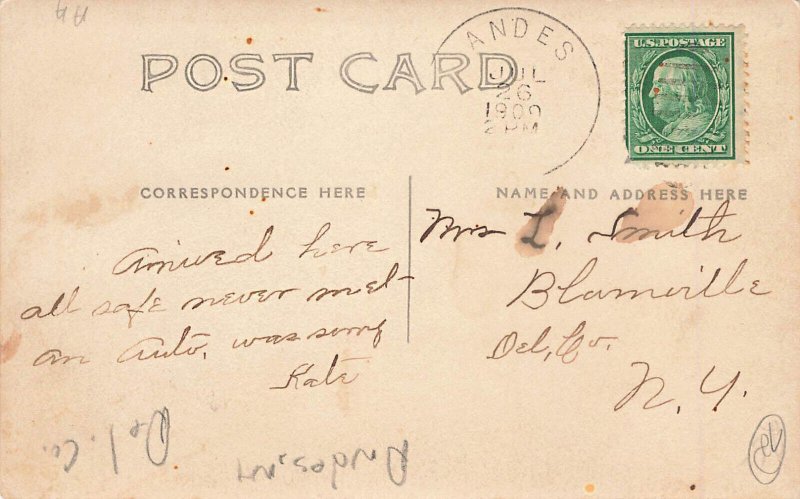 POST CARD
ANDES
JUL
26
1909
2 PM
U.S. POSTAGE
ONE CENT
CORRESPONDENCE HERE
NAME AND ADDRESS HERE
Arrived here
all safe never met
an Auto, was sorry
Kate
Mrs L. Smith
Blumville
Del, Co.
N. Y.
Del. Co.
Andes, NY